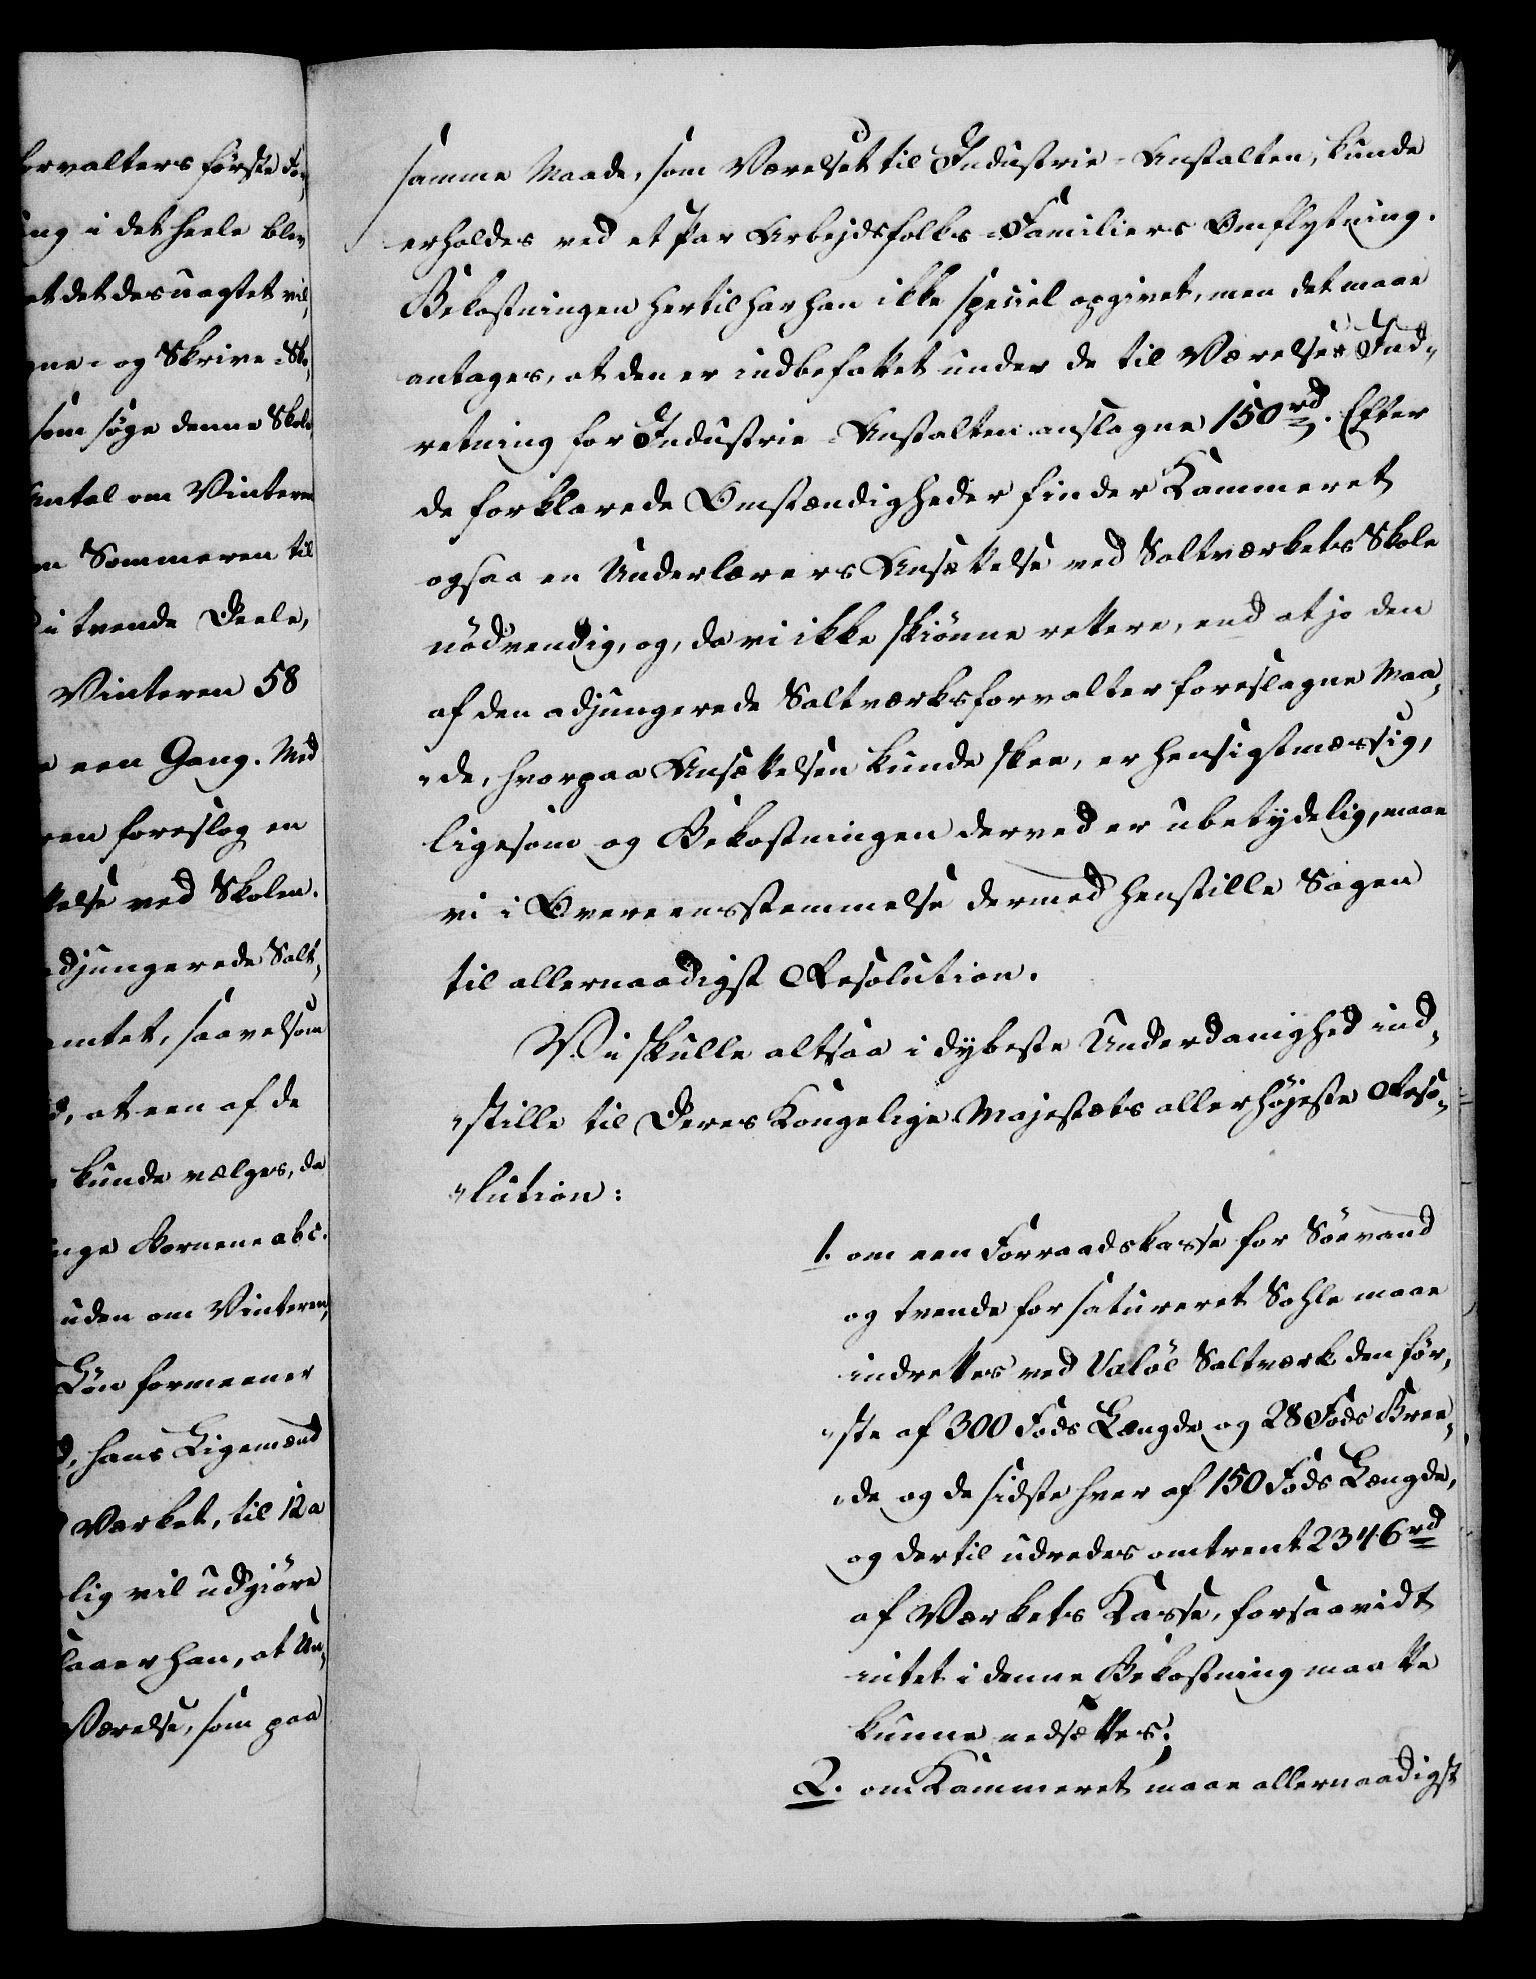 ervalters første Fo,
ing i det heele blev
at det desuagtet vil,
gne- og Skrive-Sko,
som søge denne Skole,
Antal om Vinteren
om Sommeren til
i tvende Deele,
Vinteren 58
een Gang. Med
ren foreslog en
telse ved Skolen.
adjungerede Salt,
amtet, saavelsom
d, at een af de
kunde vælges, da
nge Børnene abc.
uden om Vinteren,
Løn formeener
d, hans Ligemænd
Værket, til 12 a
lig vil udgiøre
slaaer han, at Un,
Værelse, som paa
samme Maade, som Værelset til Industrie-Anstalten, kunde
erholdes ved et Par Arbejdsfolks-Familiers Omflytning.
Bekostningen hertil har han ikke speciel opgivet, men det maae
antages, at den er indbefattet under de til Værelsers Ind,,
retning for Industrie-Anstalten anslagne 150 rd. Efter
de forklarede Omstændigheder finder Kammeret
ogsaa en Underlærers Ansættelse ved Saltværkets Skole
nödvendig, og, da vi ikke skiönne rettere, end at jo den
af den adjungerede Saltværksforvalter foreslagne Maa,,
,,de, hvorpaa Ansættelsen kunde skee, er hensigtmæssig,
ligesom og Bekostningen derved er ubetydelig, maae
vi i Overeensstemmelse dermed henstille Sagen
til allernaadigst Resolution.
Vi skulle altsaa i dybeste Underdanighed ind,,
,,stille til Deres Kongelige Majestæts allerhöjeste Reso,,
,,lution:
1. om een Forraadskasse for Söevand
og tvende for satureret Sohle maae
indrettes ved Valöe Saltværk den för,,
,,ste af 300 Fods Længde og 28 Fods Bree,,
,,de og de sidste hver af 150 Fods Længde,
og dertil udredes omtrent 2346 rd
af Værkets Kasse, forsaavidt
intet i denne Bekostning maatte
kunne nedsættes;
2. om Kammeret maae allernaadigst